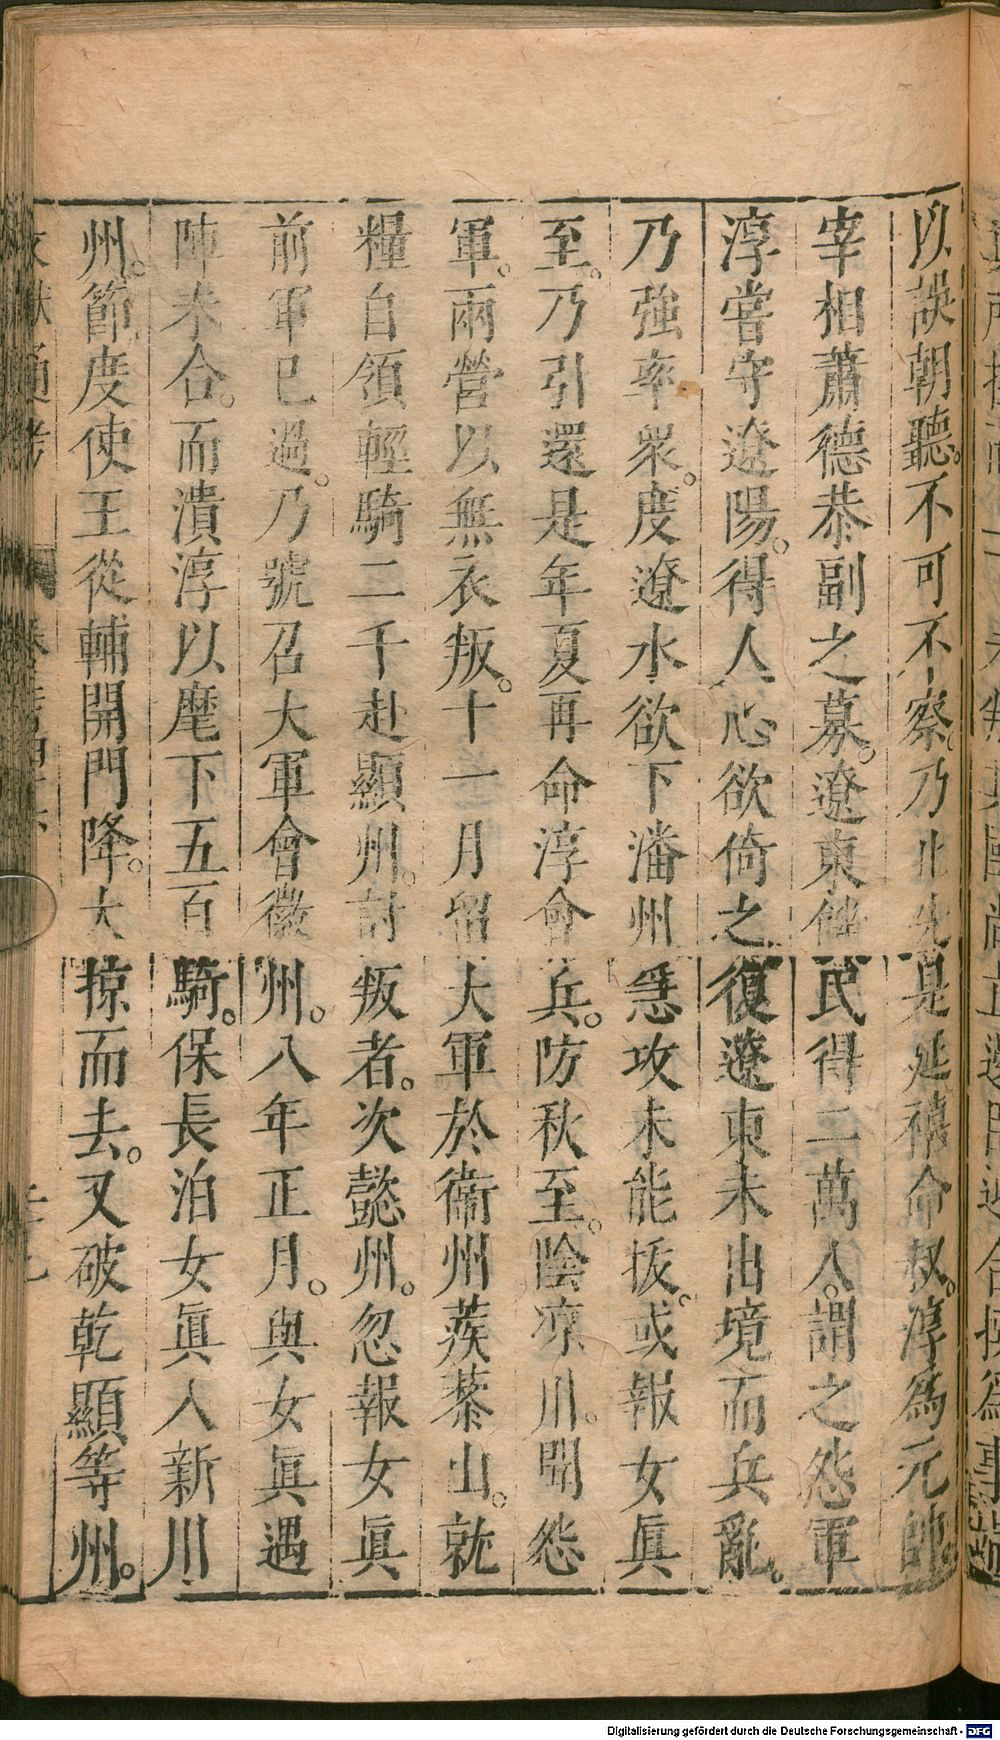 以誤朝聽。不可不察。乃止。先是延禧命叔。淳爲元帥
宰相蕭德恭副之募。遼東饑民得二萬人。謂之怨軍
淳嘗守遼陽。得人心欲倚之復遼東未出境而兵亂。
乃強率衆。度遼水欲下瀋州急攻未能拔。或報女眞
至。乃引還是年夏再命淳會兵。防秋至。陰凉川。閱怨
軍。兩營以無衣叛。十一月留大軍於衞州蒺蔾山。就
糧自領輕騎二千赴顯州。討叛者。次懿州。忽報女眞
前軍已過。乃號召大軍會徽州。八年正月。與女眞遇
陣未合。而潰淳以麾下五百騎。保長泊女眞入新川
州。節度使王從輔開門降。大掠而去。又破乾顯等州。
文獻通考
Digitalisierung gefördert durch die Deutsche Forschungsgemeinschaft - DFG